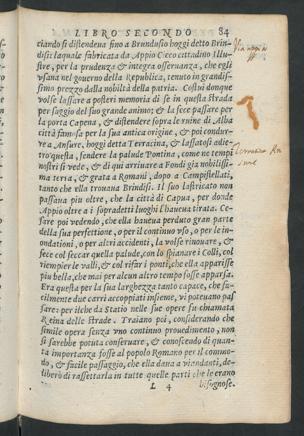 LIBRO SECONDO 84
ciando si distendeua fino a Brundusio hoggi detto Brin-
disi: laquale fabricata da Appio Cieco cittadino Illu-
stre, per la prudenza & integra osseruanza, che egli
vsana nel gouerno della Republica, tenuto in grandis-
simo prezzo dalla nobiltà della patria. Costui donque
volse lassare a posteri memoria di se in questa Strada
per saggio del suo grande animo; & la fece passare per
la porta Capena, & distendere sopra le ruine di Alba
città famosa per la sua antica origine, & poi condur-
re a Ansure, hoggi detta Terracina, & lassatosi adie-
tro questa, fendere la palude Pontina, come ne tempi
nostri si vede, & di qui arriuare a Fondi già nobilissi-
ma terra, & grata a Romani, dopo a Campistellati,
tanto che ella trouaua Brindisi. Il suo lastricato non
passaua piu oltre, che la città di Capua, per donde
Appio oltre a i sopradetti luoghi l'haueua tirata. Ce-
sare poi vedendo, che ella haueua perduto gran parte
della sua perfettione, o per il continuo vso, o per le in-
nondationi, o per altri accidenti, la volse rinouare, &
fece col seccar quella palude, con lo spianare i Colli, col
riempier le valli, & col rifar i ponti, che ella apparisse
piu bella, che mai per alcun altro tempo fosse apparsa.
Era questa per la sua larghezza tanto capace, che fa-
cilmente due carri accoppiati insieme, vi poteuano pas-
sare: per ilche da Statio nelle sue opere fu chiamata
Reina delle strade. Traiano poi, considerando che
simile opera senza vno continuo prouedimento, non
si sarebbe potuta conseruare, & conoscendo di quan-
ta importanza fosse al popolo Romano per il commo-
do, & facile passaggio, che ella daua a viandanti, de-
liberò di rassettarla in tutte quelle parti che le erano
L 4 bisognose.